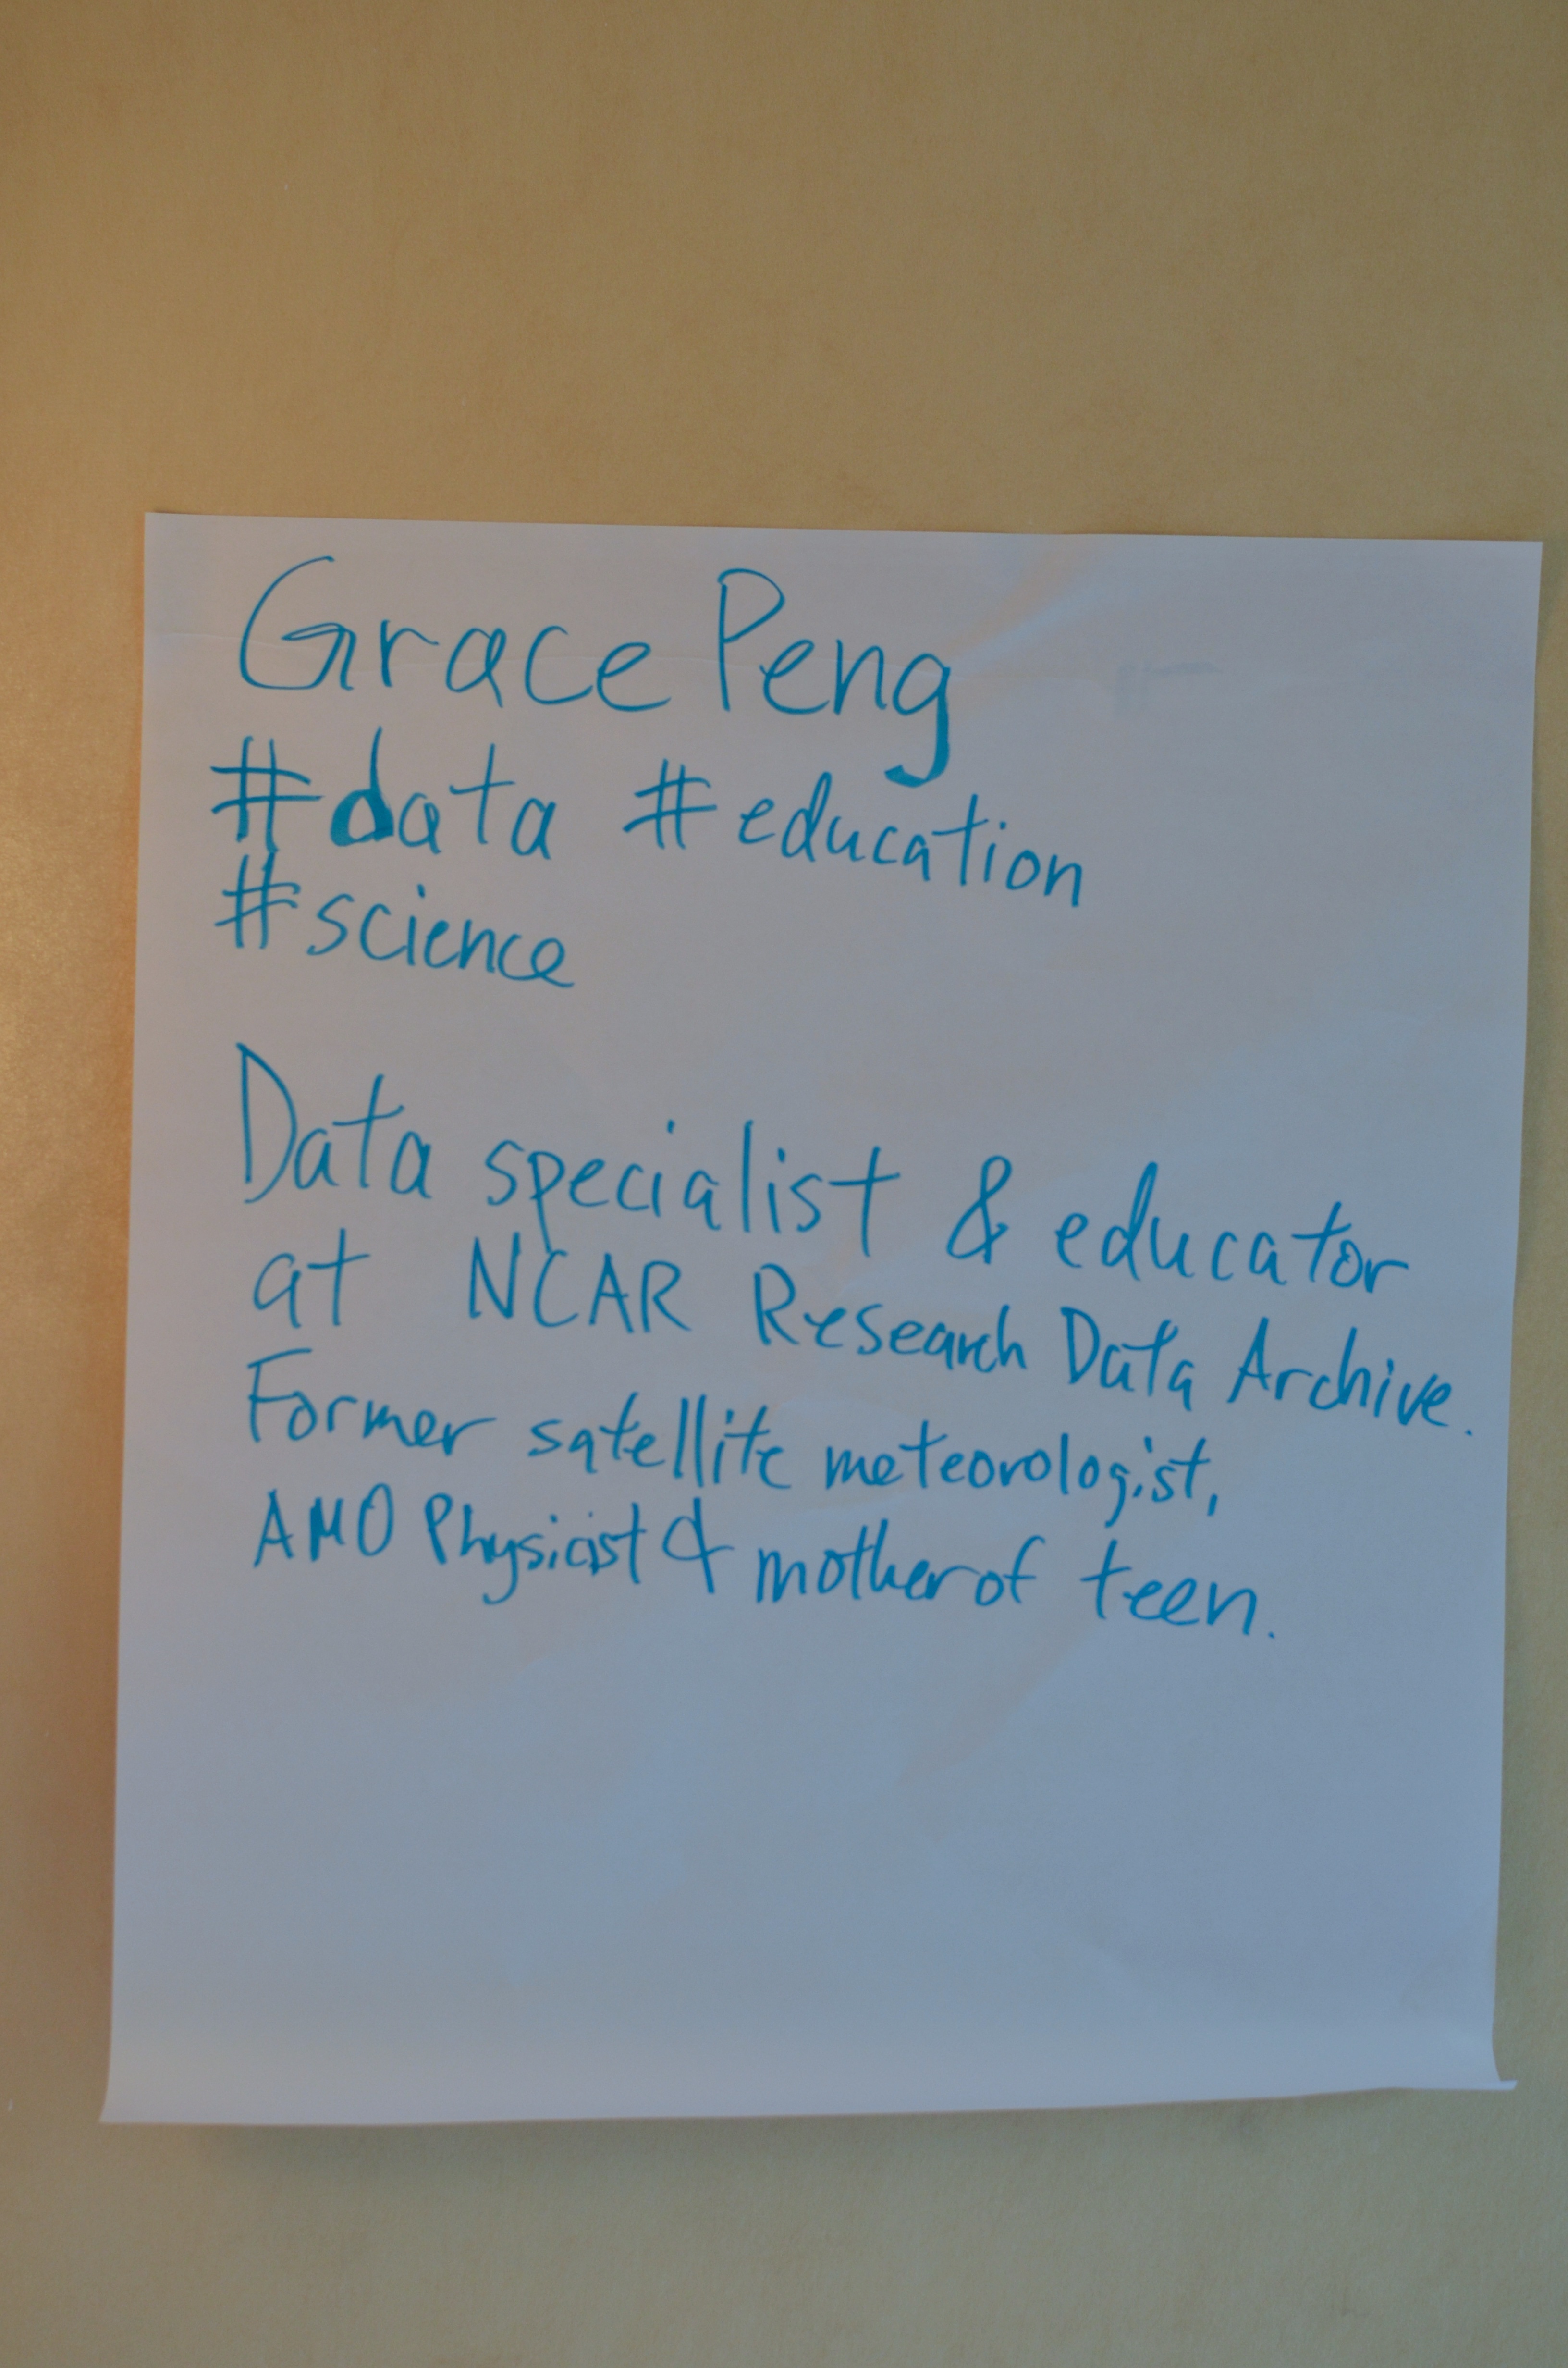 Grace Peng
#data #education
#science
Data specialist & educator
at NCAR Research Data Archive.
Former satellite meteorologist,
AMO Physicist & mother of teen.